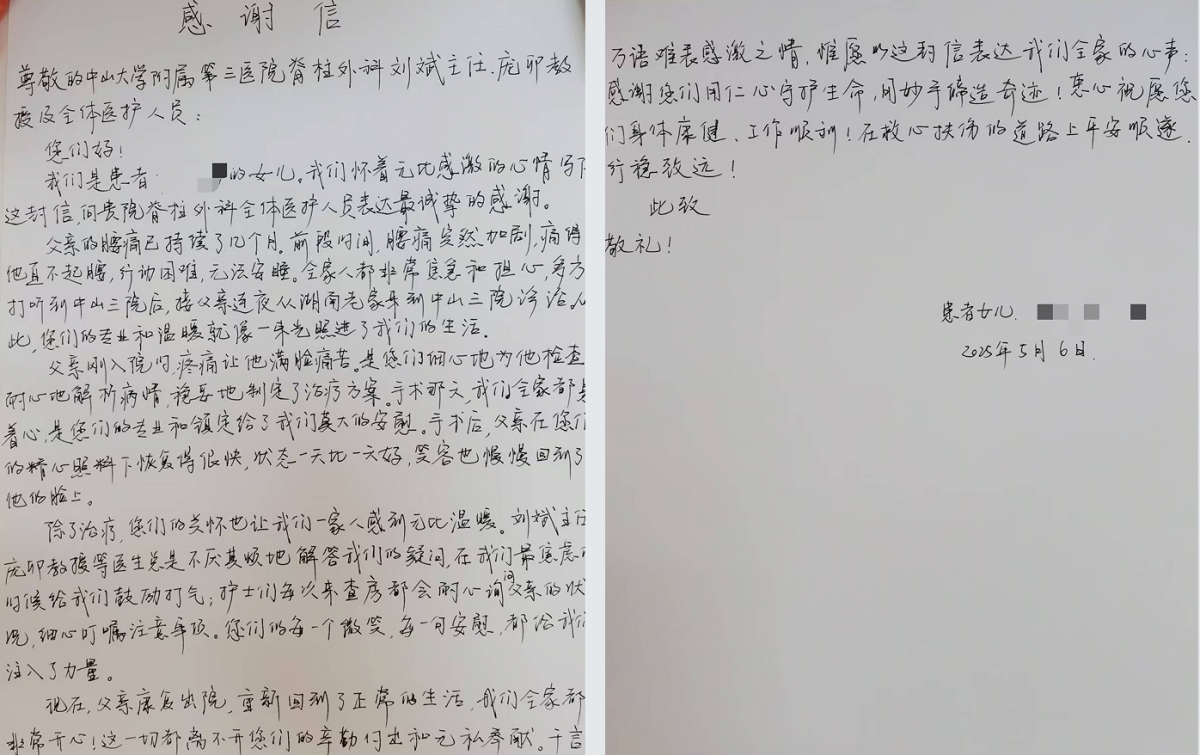 感谢信
尊敬的中山大学附属第三医院脊柱外科刘斌主任、庞卯教
授及全体医护人员:
您们好!
我们是患者 的女儿。我们怀着无比感激的心情写下
这封信,向贵院脊柱外科全体医护人员表达最诚挚的感谢。
父亲的腰痛已持续了几个月。前段时间,腰痛突然加剧,痛得
他直不起腰,行动困难,无法安睡。全家人都非常焦急和担心,多方
打听到中山三院后,接父亲连夜从湖南老家来到中山三院诊治。从
此,您们的专业和温暖就像一束光照进了我们的生活。
父亲刚入院时,疼痛让他满脸痛苦。是您们细心地为他检查
耐心地解析病情,稳妥地制定了治疗方案。手术那天,我们全家都悬
着心,是您们的专业和镇定给了我们莫大的安慰。手术后,父亲在您们
的精心照料下恢复得很快,状态一天比一天好,笑容也慢慢回到了
他的脸上。
除了治疗,您们的关怀也让我们一家人感到无比温暖。刘斌主任
庞卯教授等医生总是不厌其烦地解答我们的疑问,在我们最焦虑的
时候给我们鼓励打气;护士们每次来查房都会耐心询问父亲的状
况,细心叮嘱注意事项。您们的每一个微笑,每一句安慰,都给我们
注入了力量。
现在,父亲康复出院,重新回到了正常的生活,我们全家都
非常开心!这一切都离不开您们的辛勤付出和无私奉献。千言
万语难表感激之情,惟愿以这封信表达我们全家的心声:
感谢您们用仁心守护生命,用妙手缔造奇迹!衷心祝愿您
们身体康健、工作顺利!在救心扶伤的道路上平安顺遂,
行稳致远!
此致
敬礼!
患者女儿:
2025年5月6日.